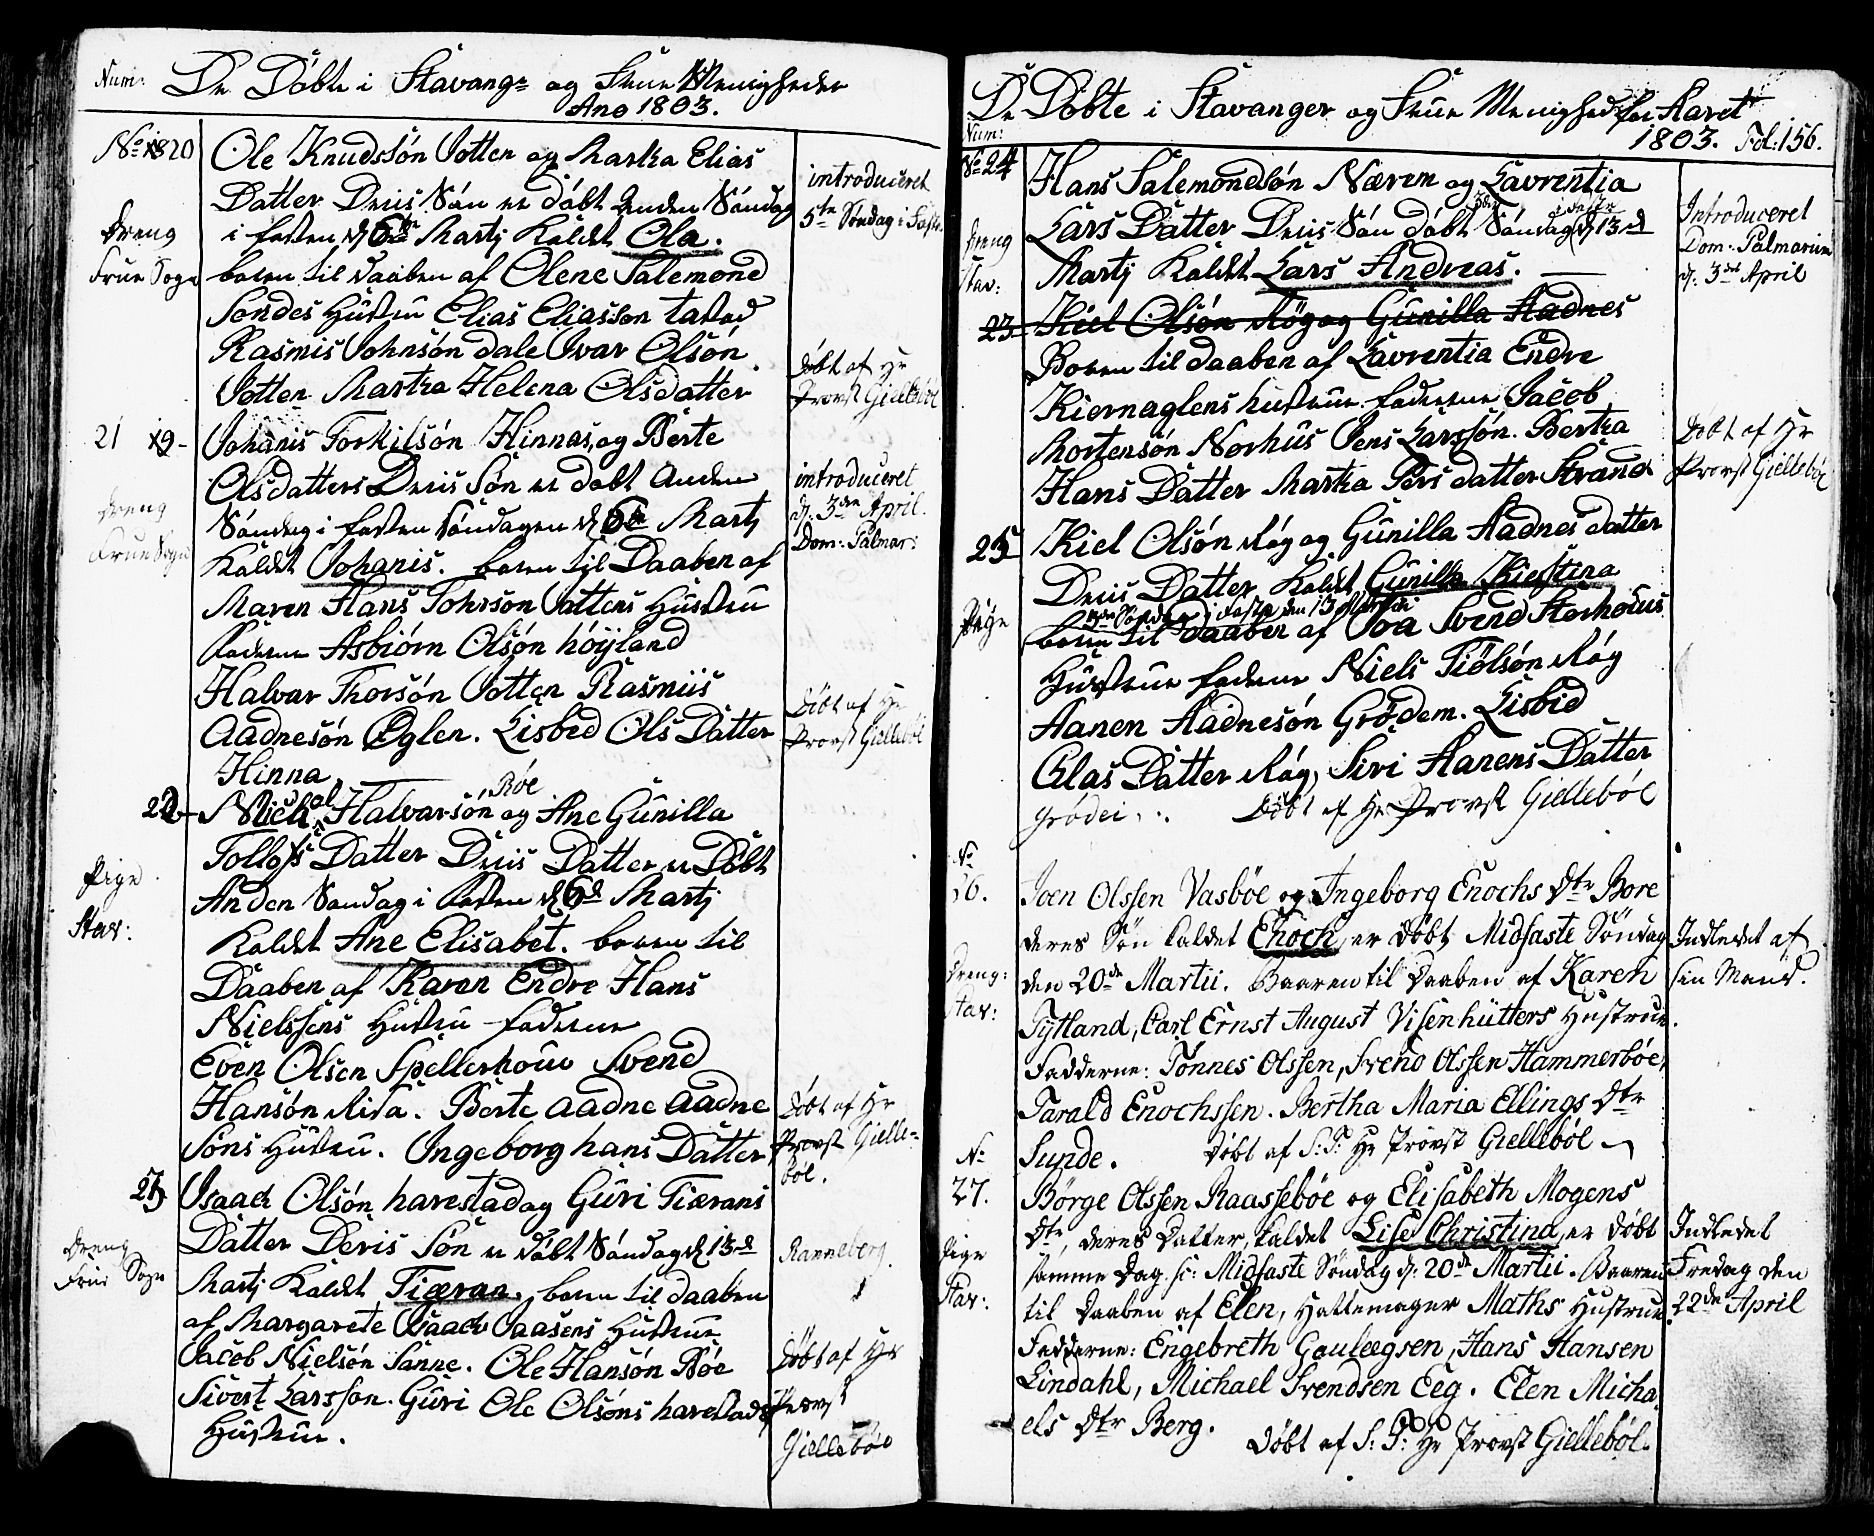 Num: De Döbte i Stavangr og Frue Menigheder
Ano 1803.
No 20
Ole Knudssön Votten og Marta Elias
Datter Deris Sön er döbt Anden Söndag
i fasten d 6te Martj Kaldt Ola.
baren til Daaben af Olene Salemond
Söndes Hustru Elias Eliasson tastad
Rasmis Johnsön dale Ivar Olsön
Votten Marta Helena Olsdatter
Dreng
Frue Sogn
introduceret
5te Söndag i Faste
Döbt af Hr
Provst Giellebøl
21
Johanis Torkilsön Hinnas, og Berte
Olsdatters Deris Sön er döbt Anden
Söndag i fasten Söndagen d 6te Martj
Kaldt Johanis. baren til Daaben af
Maren Hans Tohrson Vattens Hustru
Faderne Asbiörn Olsön höyland
Halvar Thorsön Votten Rasmus
Aadnesön Øglen. Lisbed Ols Datter
Hinna
Dreng
Frue Sogn
introduceret
d. 3de April.
Dom: Palmar:
Döbt af Hr
Provst Giellebøl
22
Michal Halvarsön Röe og Ane Gunilla
Datter Deris Datter er Döbt
Anden Söndag i Fasten d 6te Martj
Kaldt Ane Elisabet. baren til
Daaben af Karen Endre Hans
Nielssens Hustru faderne
Even Olsen Spellerhoug Svend
Hansön Risa. Berte Aadne Aadne
Söns Hustru. Ingeborg hans Datter
Pige
Stav:
Döbt af Hr
Provst Gielle-
böl.
23
Isaach Olsön harestad og Guri Tiærans
Datter Deris Sön er döbt Söndag d 13de
Martj Kaldt Tiæran. baren til daaben
af Margarete Isaach Vaasens Hustrue
Jacob Nielsön Sanne. Ole Hansön Böe
Sivert Larsson. Guri Ole Olsöns harestads
Hustrue.
Dreng
Frue Sogn
Ranneberg
Döbt af Hr
Provst
Giellebøl
De Döbte i Stavanger og Frue Menighed for Aaret
1803. Fol: 156.
Num:
No 24
Hans Salemondsön Nærem og Lavrentia
Lars Datter Deris Sön döbt 3die Söndag i Faste d 13de
Martj Kaldt Lars Andreas.
23 Kiel Olsön Røg og Gunilla Aadnes
Boren til daaben af Lavrentia Endre
Kiernaglens hustrue faderne Jacob
Mortensön Norhus Jens Larssön. Berta
Hans Datter Marta Pers datter Strand
Dreng
Stav:
Introduceret
Dom: Palmarum
d. 3de April
Döbt af Hr
Provst Giellebøl
25
Kiel Olsön Røg og Gunilla Aadnes datter
Deris Datter Kaldt Gunilla Kiestina
3die Söndag i Faste den 13 Martii
baren til daaben af Eva Svend Storhous
Hustrue faderne Niels Tiölsön Røg
Aanen Aadnesön Grödem. Lisbid
Clas Datter Røg, Siri Aanens Datter
Grödei. Döbt af Hr Provst Giellebøl
Pige
No
26.
Joen Olssen Vasböe og Ingeborg Enochs Dtr Bore
deres Sön kaldet Enoch, er döbt Midfaste Söndag
den 20de Martii. Baaren til Daaben af Karen
Tytland, Carl Ernst August Visenhütters Hustrue.
Fadderne: Tönnes Olssen, Svend Olssen Hammerböe,
Tarald Enochssen. Bertha Maria Ellings Dtr
Sunde. Döbt af S: T: Hr Provst Giellebøl
Dreng:
Stav:
Indledet af
sin Mand.
No
27.
Börge Olssen Raasseböe og Elisabeth Mogens
Dtr, deres Datter, kaldet Lised Christina, er döbt
samme Dag sc: Midfaste Söndag d: 20de Martii. Baaren
til Daaben af Elen, Hattemager Maths Hustrue.
Fadderne: Engebreth Gauleegsen, Hans Hansen
Lindahl, Michael Svendsen Eeg. Elen Micha-
els Dtr Berg. Döbt af S: T: Hr Provst Giellebøl.
Pige
Stav:
Indledet
Fredag den
22de April